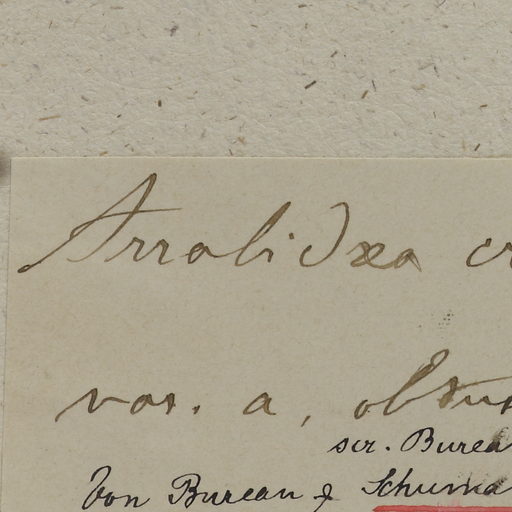 Arrabidaea
var. a, obtus
scr. Burea
Von Bureau & Schuma